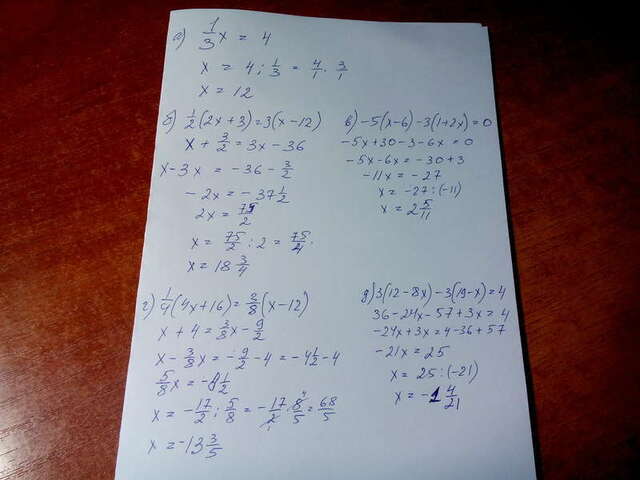 а) 1/3 x = 4
x = 4 : 1/3 = 4/1 · 3/1
x = 12
б) 1/2 (2x + 3) = 3(x - 12)
x + 3/2 = 3x - 36
x - 3x = -36 - 3/2
-2x = -37 1/2
2x = 75/2
x = 75/2 : 2 = 75/4
x = 18 3/4
в) -5(x-6) - 3(1+2x) = 0
-5x + 30 - 3 - 6x = 0
-5x - 6x = -30 + 3
-11x = -27
x = -27 : (-11)
x = 2 5/11
г) 1/4 (4x + 16) = 3/8 (x - 12)
x + 4 = 3/8 x - 9/2
x - 3/8 x = -9/2 - 4 = -4 1/2 - 4
5/8 x = -8 1/2
x = -17/2 : 5/8 = -17/2 · 8/5 = 68/5
x = -13 3/5
д) 3(12 - 8x) - 3(19 - x) = 4
36 - 24x - 57 + 3x = 4
-24x + 3x = 4 - 36 + 57
-21x = 25
x = 25 : (-21)
x = -1 4/21